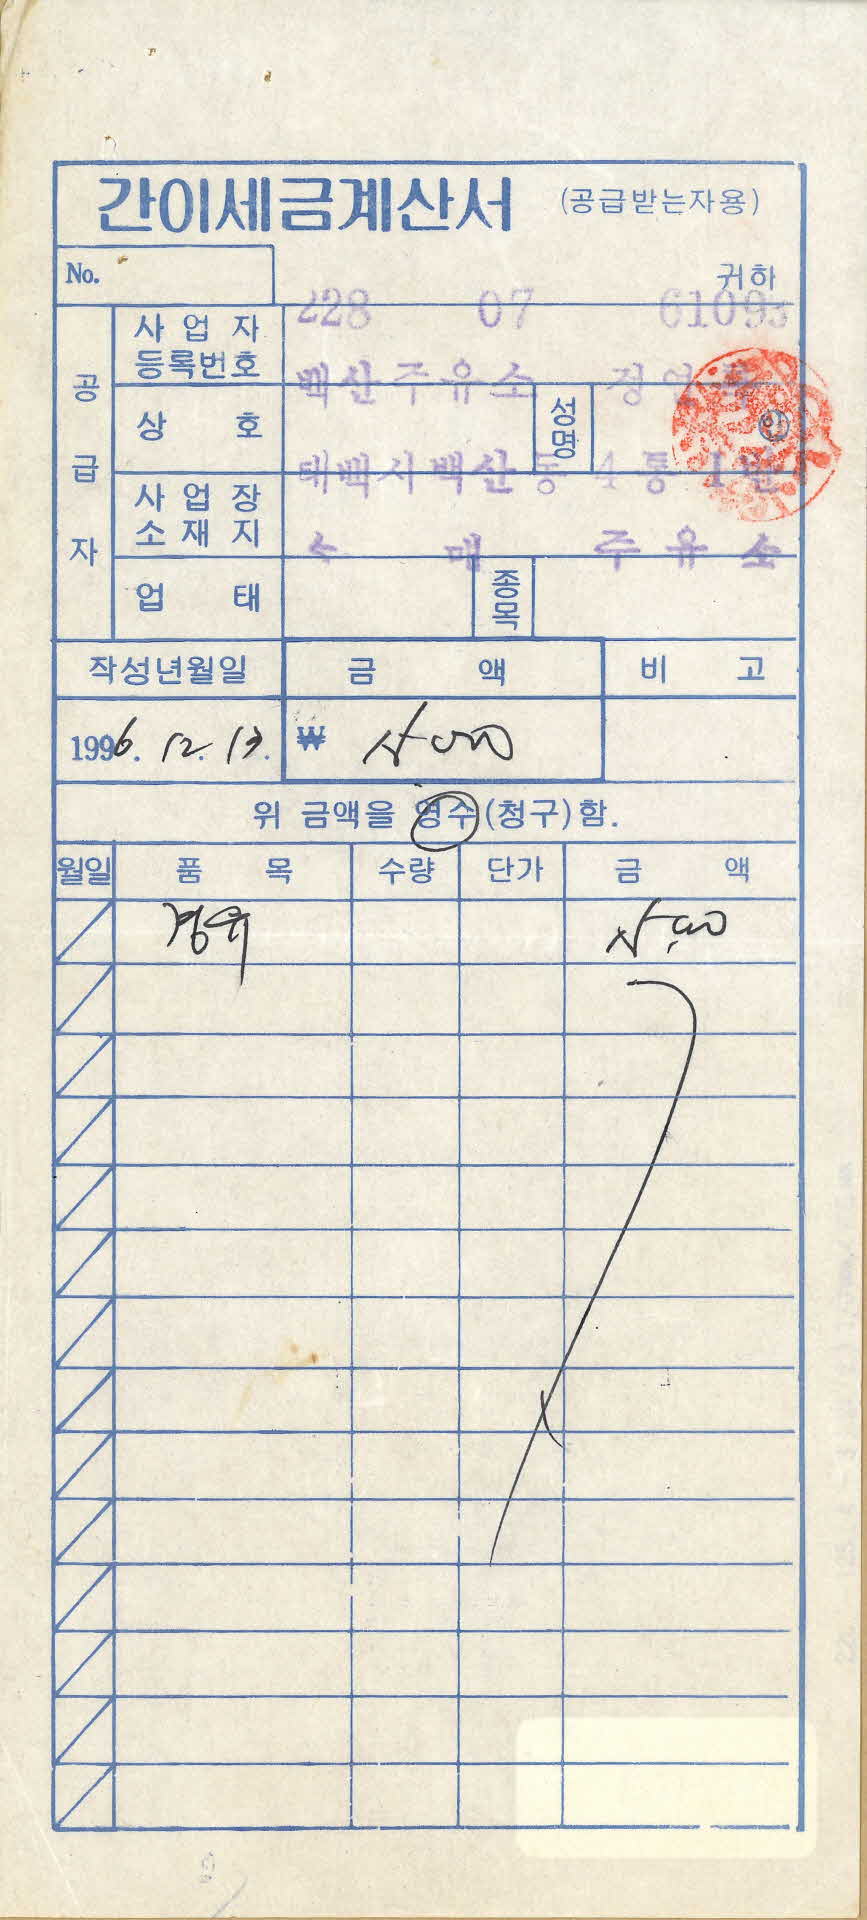 간이세금계산서 (공급받는자용)
No. 귀하
228 07 61093
공급자
사업자
등록번호
백산주유소
상 호
성명
인
태백시 백산동 4통 1반
사업장
소재지
소 매 주유소
업 태
종목
작성년월일 금 액 비 고
1996. 12. 13. ₩
위 금액을 영수(청구)함.
월일 품 목 수량 단가 금 액
경유